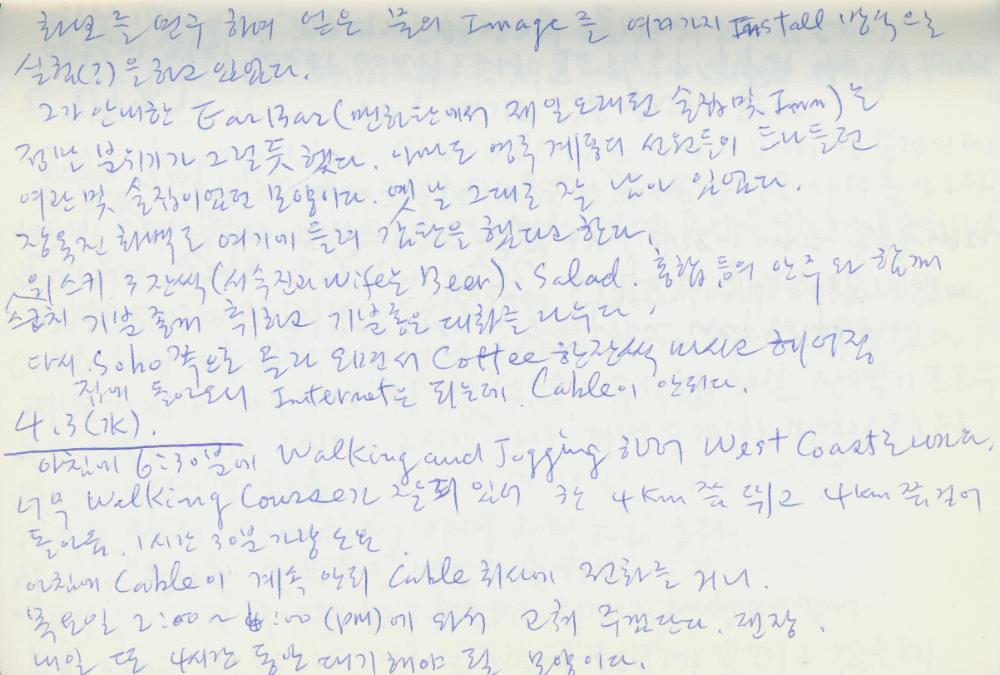 화보를 연구하며 얻은 물의 Image를 여러가지 Install 방식으로
실험(?)을 하고 있었다.
그가 안내한 Ear Bar(맨하탄에서 제일 오래된 술집 및 Inn)는
정말 분위기가 그럴듯 했다. 아마도 영국 계통의 선원들이 드나들던
여관 및 술집이었던 모양이다. 옛날 그대로 잘 남아 있었다.
장욱진 화백도 여기에 들려 감탄을 했다고 한다.
위스키 3잔씩(서숙진과 wife는 Beer), Salad, 홍합 등의 안주와 함께
스코치 기분 좋게 취하고 기분 좋은 대화를 나누다,
다시 Soho쪽으로 올라오면서 Coffee 한잔씩 마시고 헤어짐
집에 돌아오니 Internet은 되는데 Cable이 안된다.
4.3(水).
아침에 6:30분에 Walking and Jogging 하러 West Coast로 나감,
너무 Walking Course가 잘 되 있어 한 4Km쯤 뛰고 4km쯤 걸어
돌아옴. 1시간 30분 가량 소요.
아침에 Cable이 계속 안되 Cable 회사에 전화를 거니.
목요일 2:00~6:00(pm)에 와서 고쳐 주겠단다. 젠장.
내일 또 4시간 동안 대기해야 될 모양이다.